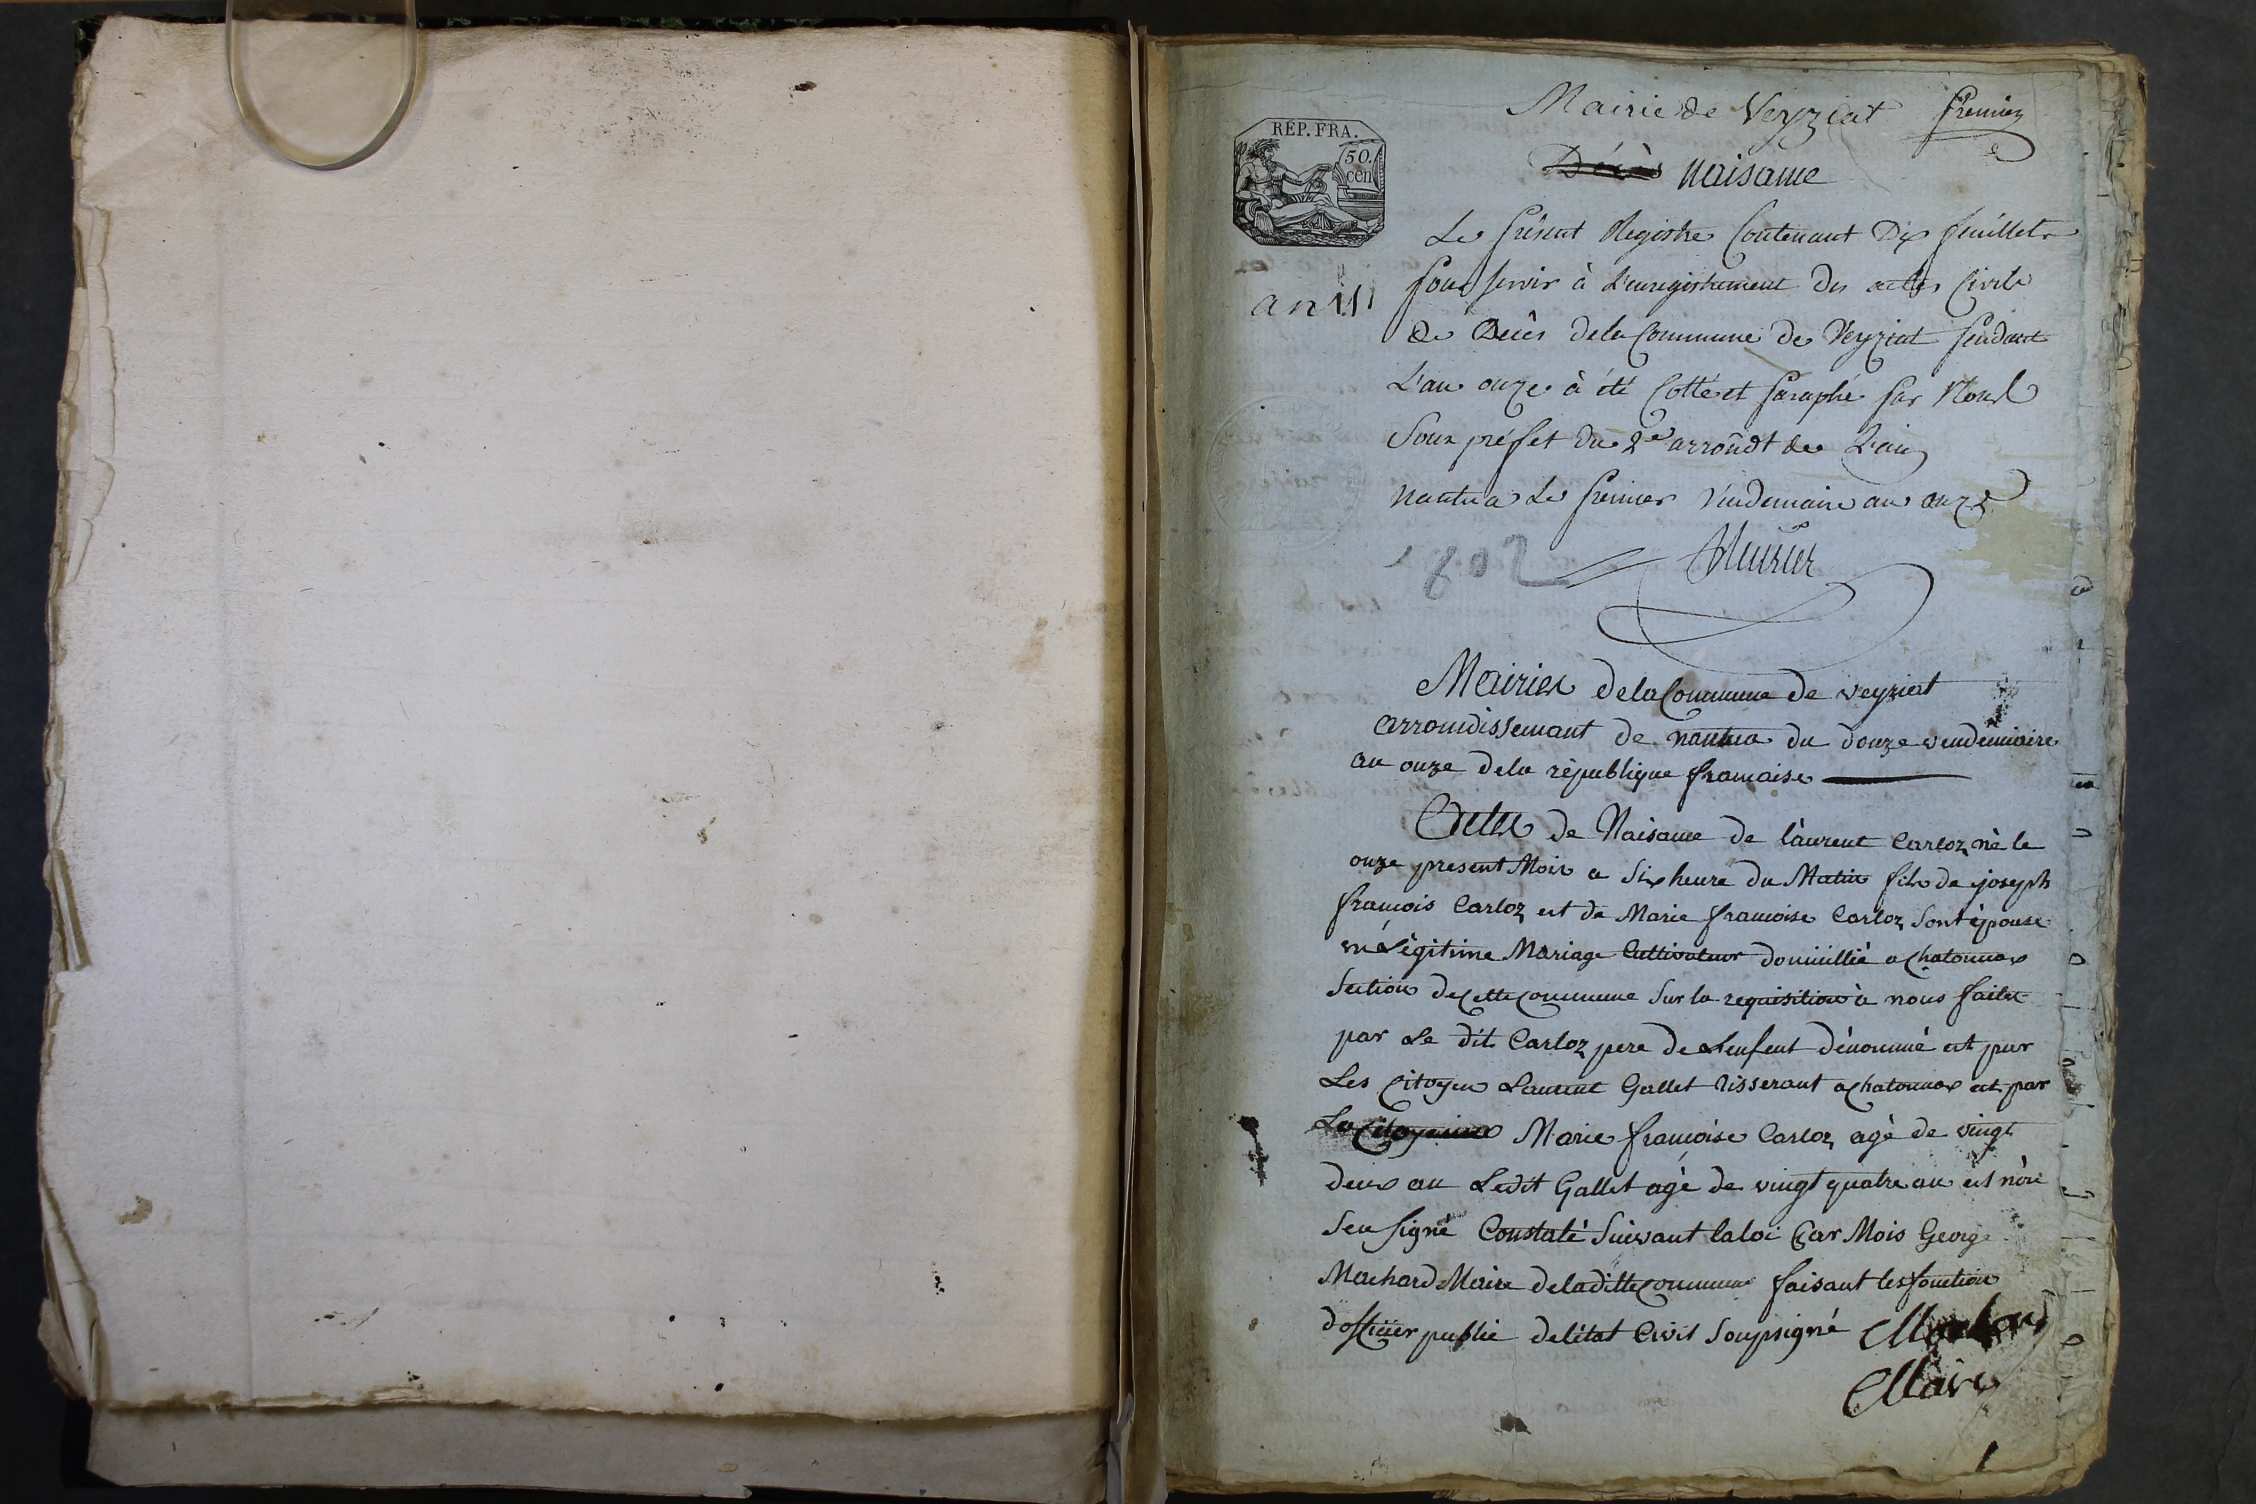 Mairie de Veyziat premier
REP. FRA.
50.
cen
Décès Naisance
Le présent Registre Contenant Dix feuillets
pour servir à L'enregistrement des actes Civils
de Décès de la Commune de Veyziat pendant
an 11
L'an onze à été Cotté et paraphé par Nous
Sous préfet du 2e arrondt de L'ain
Nantua Le premier Vendemaire an onze
1802
Mairie de la Commune de veyziat
arrondissemant de nantua du douze vendemiaire
an onze de la république francaise
Acte de Naisance de laurent Carloz né le
onze present Mois a Six heure du Matin fils de joseph
francois Carloz et de Marie francoise Carloz Sont épouse
en Légitime Mariage Cultivateur domicillié a Chatonnax
Section de Cette Commune Sur la requisition à nous faite
par Le dit Carloz pere de Lenfent dénommé et par
Les Citoyen Laurent Gallet tisserant a Chatonnax et par
La Citoyenne Marie francoise Carloz agé de vingt
deux an Ledit Gallet agé de vingt quatre an et n'on
Seu signé Constaté Suivant la loi par Mois George
Machard Maire de la ditte Commune faisant les fonction
d'officier public de l'état Civil Soupsigné Machard
Maire